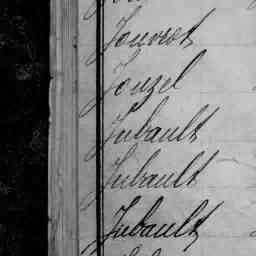 Jouvrot
Jouzel
Jubault
Jubault
Jubault